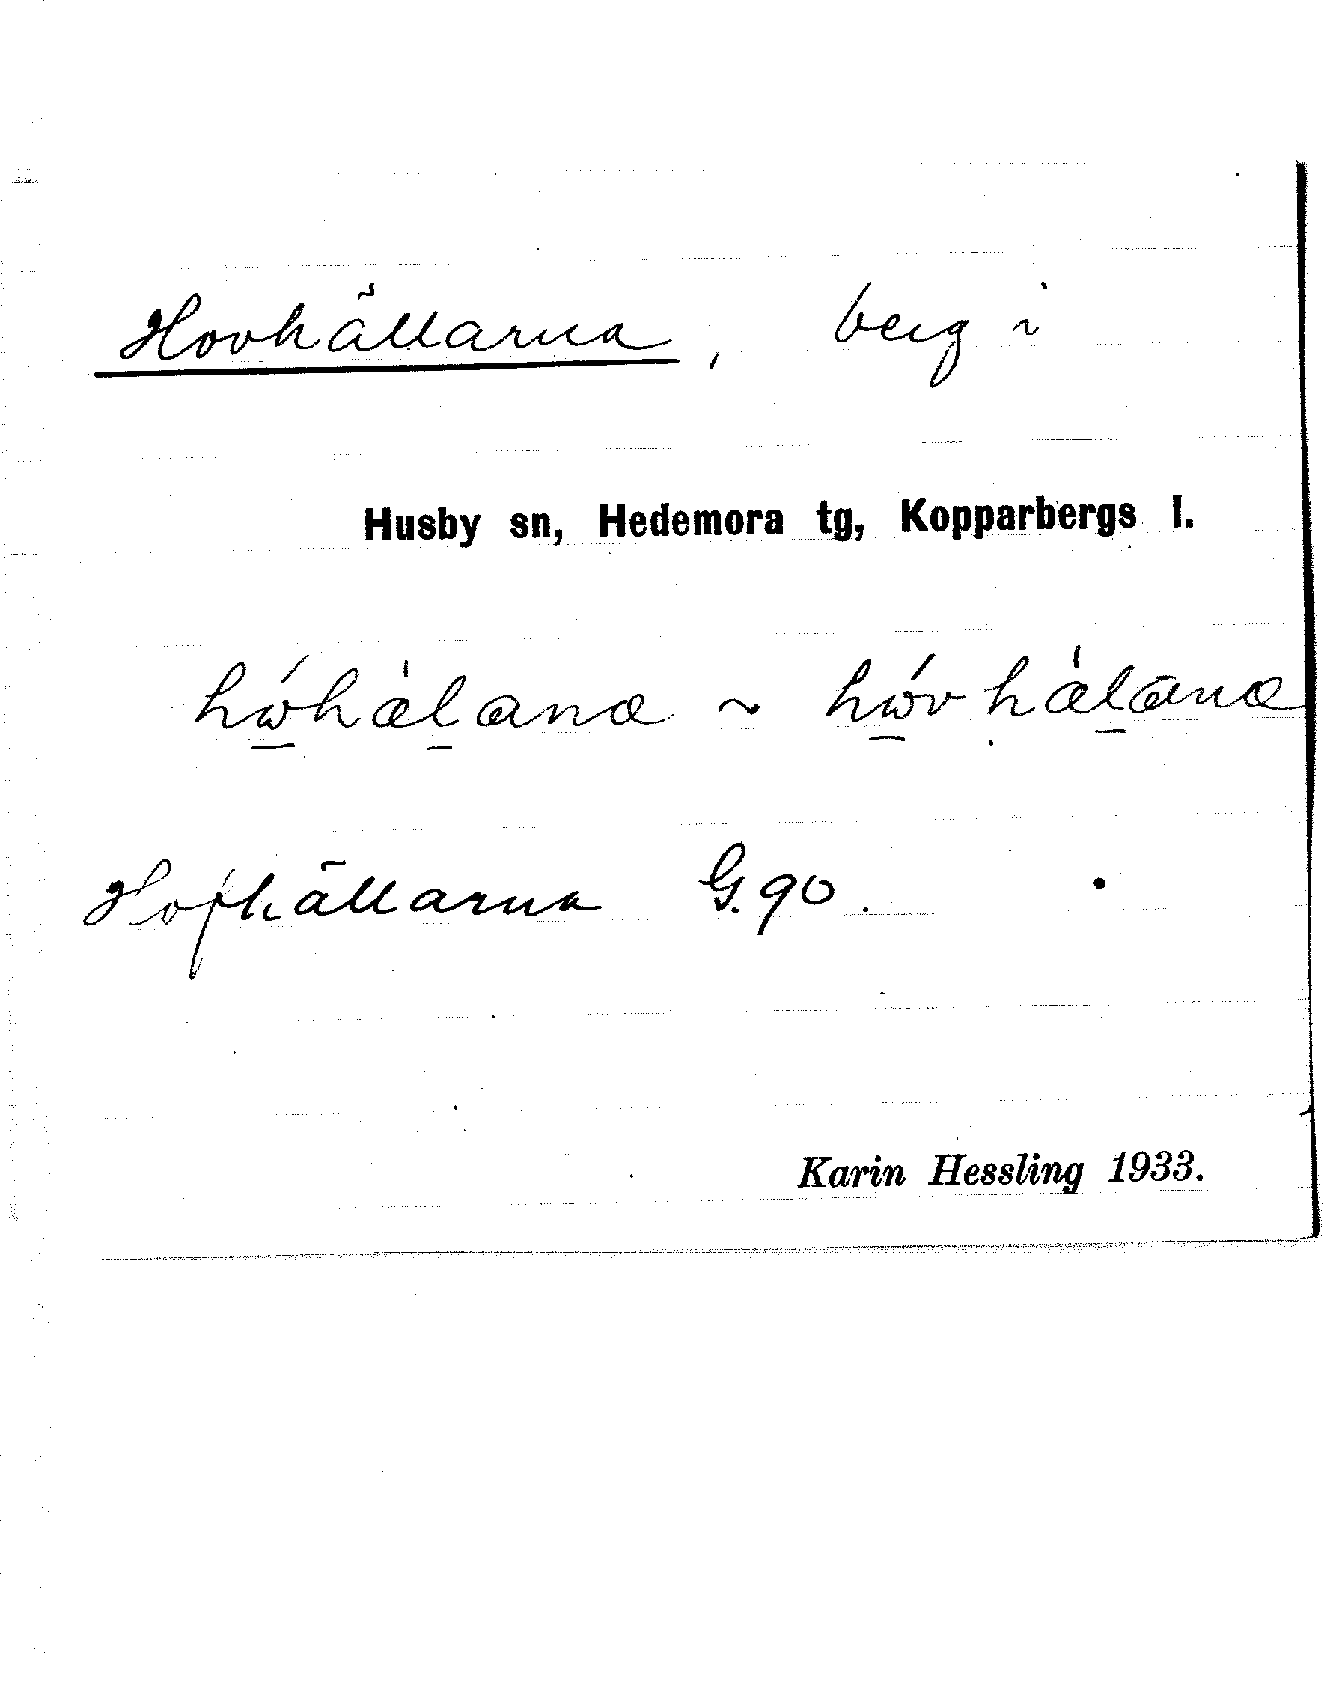 Hovhällarna, berg i
Husby sn, Hedemora tg, Kopparbergs l.
~
Hofhällarna G. 90.
Karin Hessling 1933.